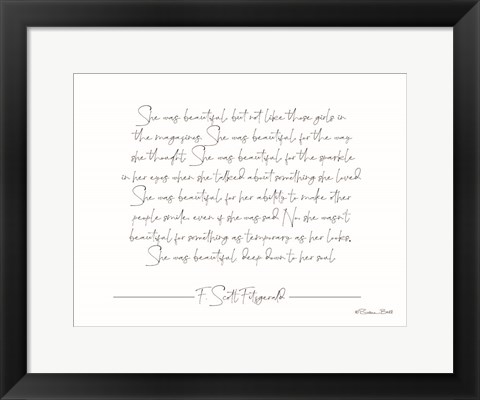 She was beautiful but not like those girls in
the magazines. She was beautiful for the way
she thought. She was beautiful for the sparkle
in her eyes when she talked about something she loved.
She was beautiful for her ability to make other
people smile, even if she was sad. No, she wasn't
beautiful for something as temporary as her looks.
She was beautiful deep down to her soul
F. Scott Fitzgerald